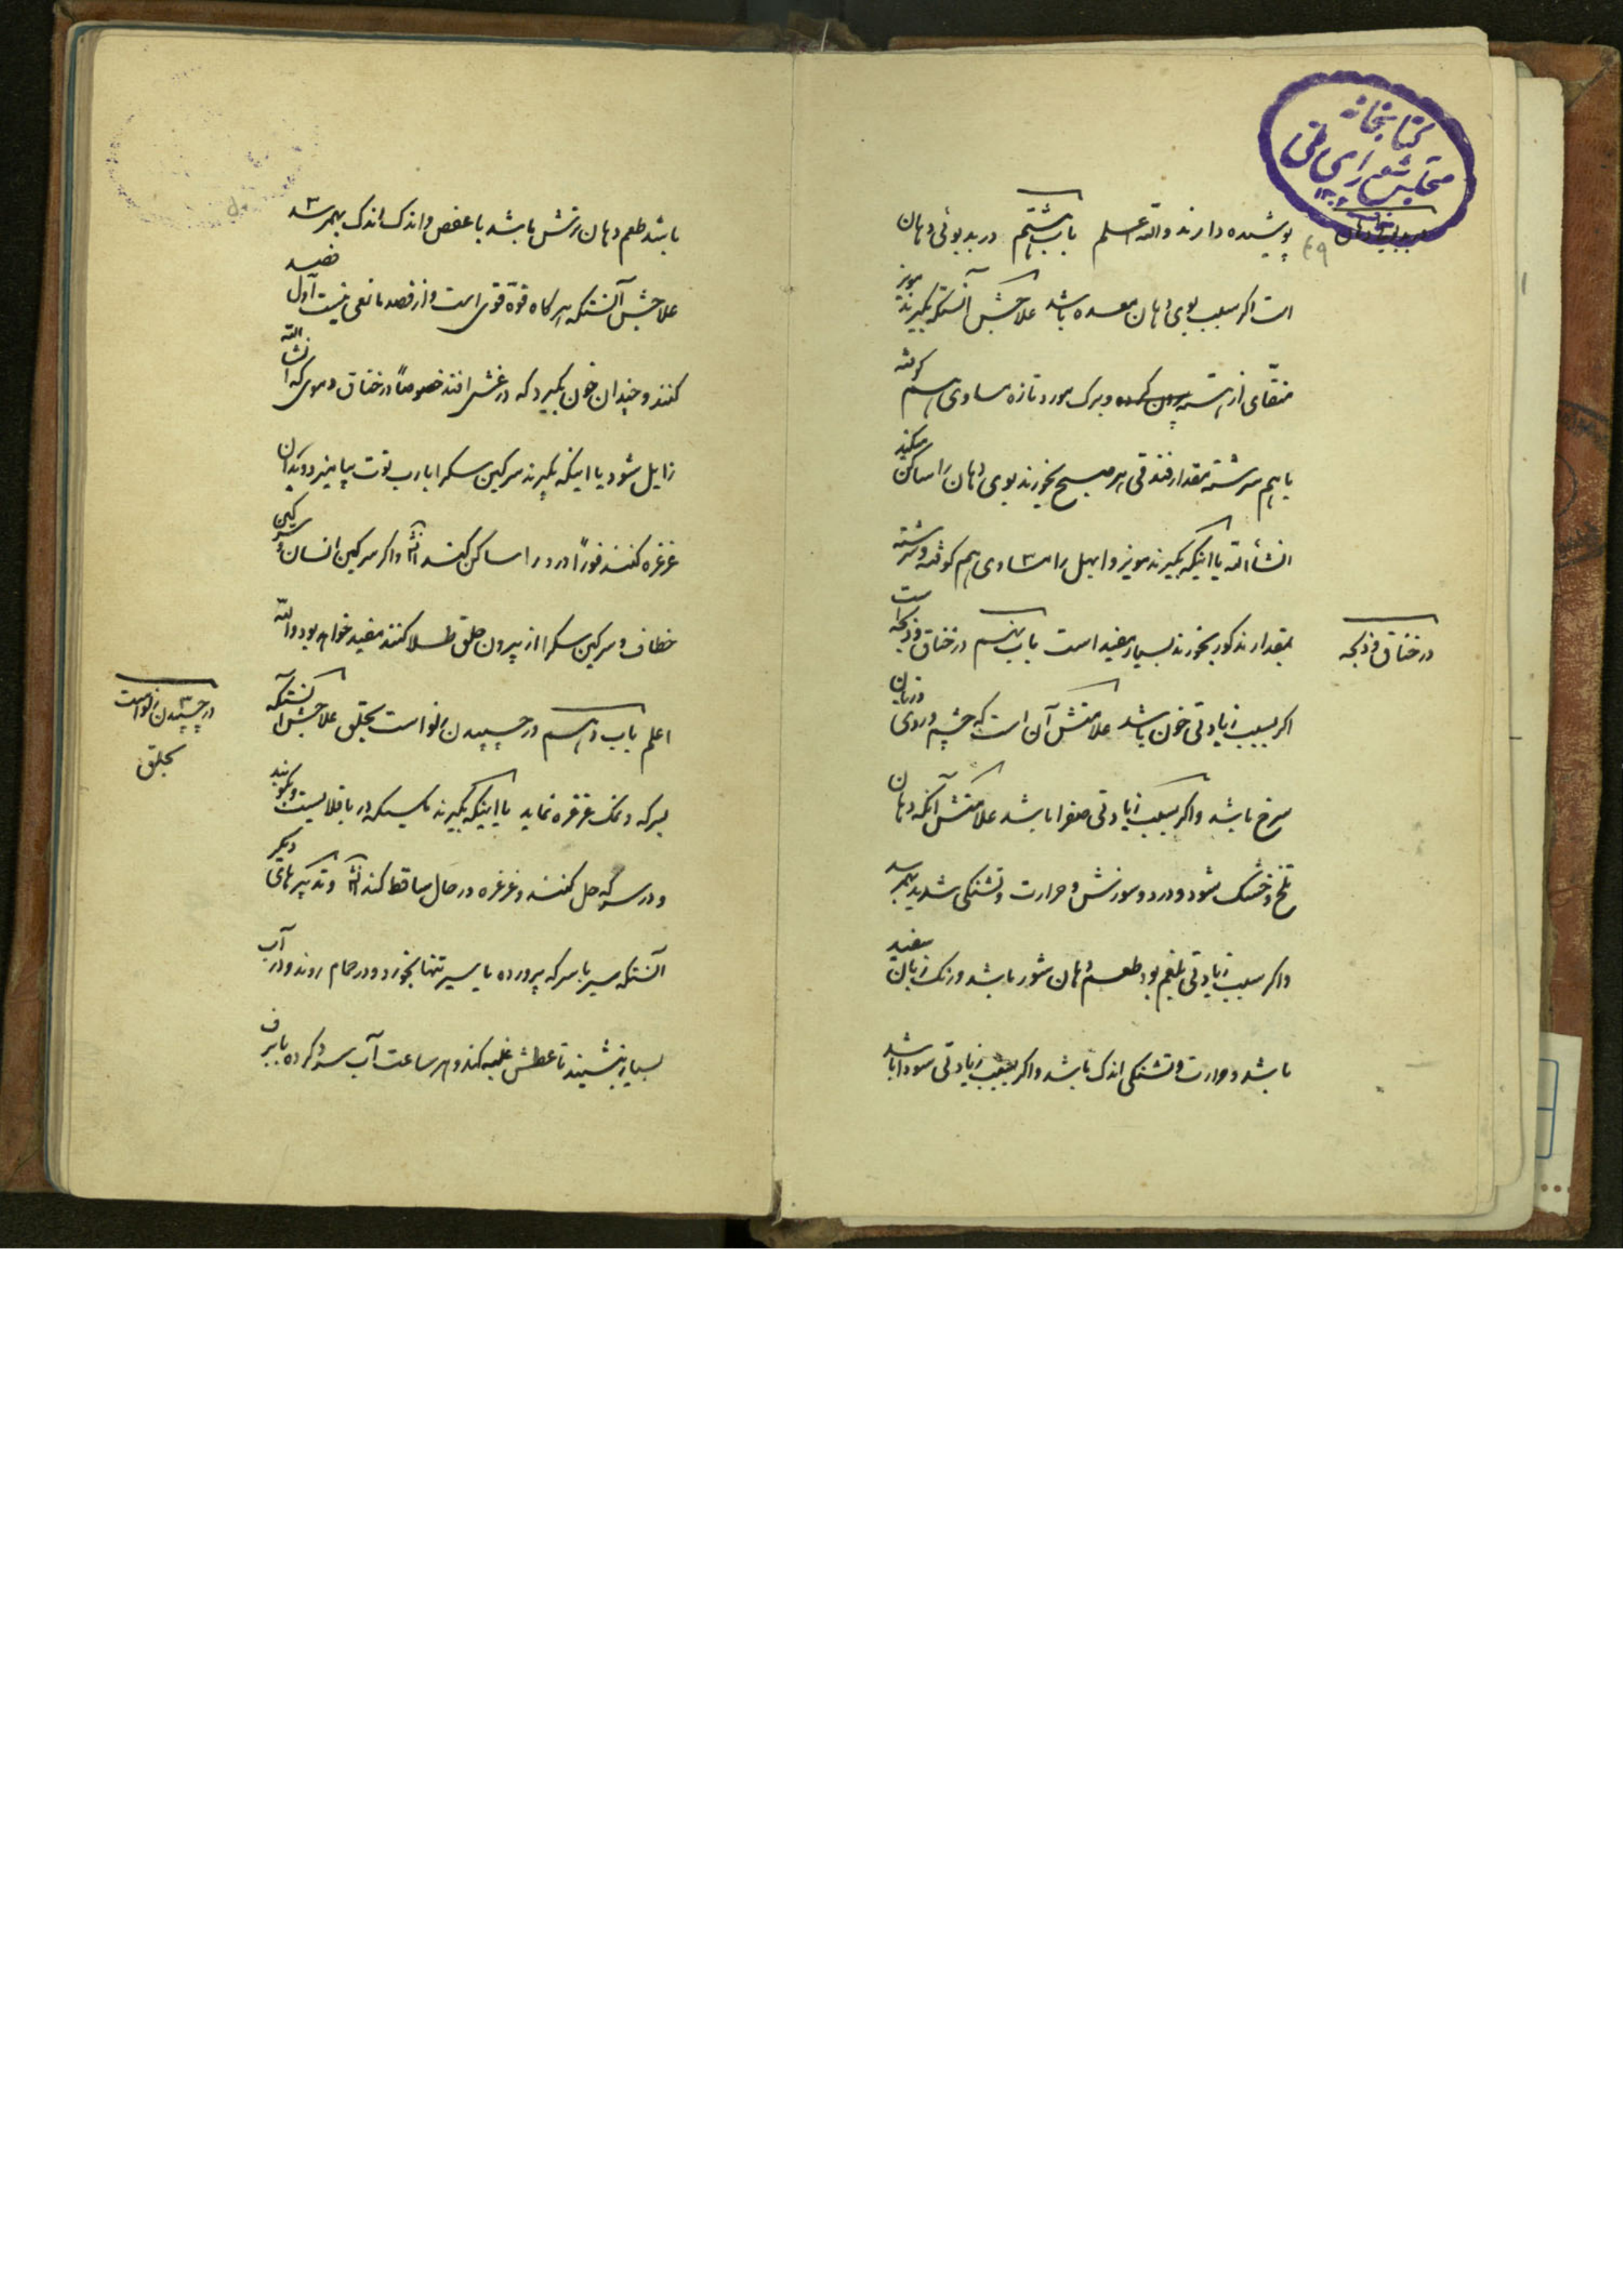 کتابخانه
مجلس شورای ملی
پوشیده دارند والله اعلم باب هشتم در بدبوئی دهان
است اکر بسبب بوی دهان معده باشد علاجش آنستکه بکیرند مویز
منقّای از هسته بیرون کرده و برک مورد تازه مساوی هم کوفته
باهم سرشته مقدار فندقی هر صبح بخورند بوی دهان را ساکن میکند
انشأالله یا اینکه بکیرند مویز و ابهل را مساوی هم کوفته و سرشته
بمقدار مذکور بخورند بسیار مفید است باب نهم در خناق و ذبحه است
در خناق و ذبحه
اکر بسبب زیادتی خون باشد علامتش آن است که چشم و روی و زبان
سرخ باشد و اکر بسبب زیادتی صفرا باشد علامتش آنکه دهان
تلخ و خشک شود و درد و سوزش و حرارت و تشنکی شدید بهمرسد
و اکر بسبب زیادتی بلغم بود طعم دهان شور باشد و رنک زبان سفید
باشد و حرارت و تشنکی اندک باشد و اکر بسبب زیادتی سودا باشد
باشد طعم دهان ترش باشد با عفص و اندک اندک بهمرسد
علاجش آنستکه هرکاه قوّه قوی است و از فصد مانعی نیست اول فصد
کنند و چندان خون بکیرد که در غشی افتد خصوصاً در خناق دموی که انشاالله
زایل شود یا اینکه بکیرند سرکین سک را با رب توت بیامیزد و بدان
غرغره کنند فوراً درد را ساکن کند انش و اکر سرکین انسان و سرکین
خطاف و سرکین سک را از بیرون حلق طلا کنند مفید خواهد بود والله
اعلم باب دهم در چسپیدن زلو است بحلق علاجش آنستکه
در چسپیدن زلو است
بحلق
بسرکه و نمک غرغره نماید یا اینکه بکیرند مکسیکه در باقلا است و بکوبند
و در سرکه حل کنند و غرغره در حال ساقط کند انش و تدبیرهای دیکر
آنستکه سیر با سرکه پرورده یا سیر تنها بخورد و در حمام روند و در آب
بسیار بنشیند تا عطش غلبه کند و هر ساعت آب سرد کرده با برف